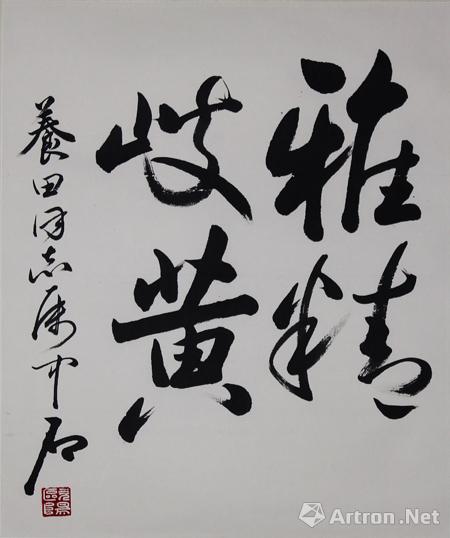 雅精
岐黄
養田同志属中石
Artron.Net